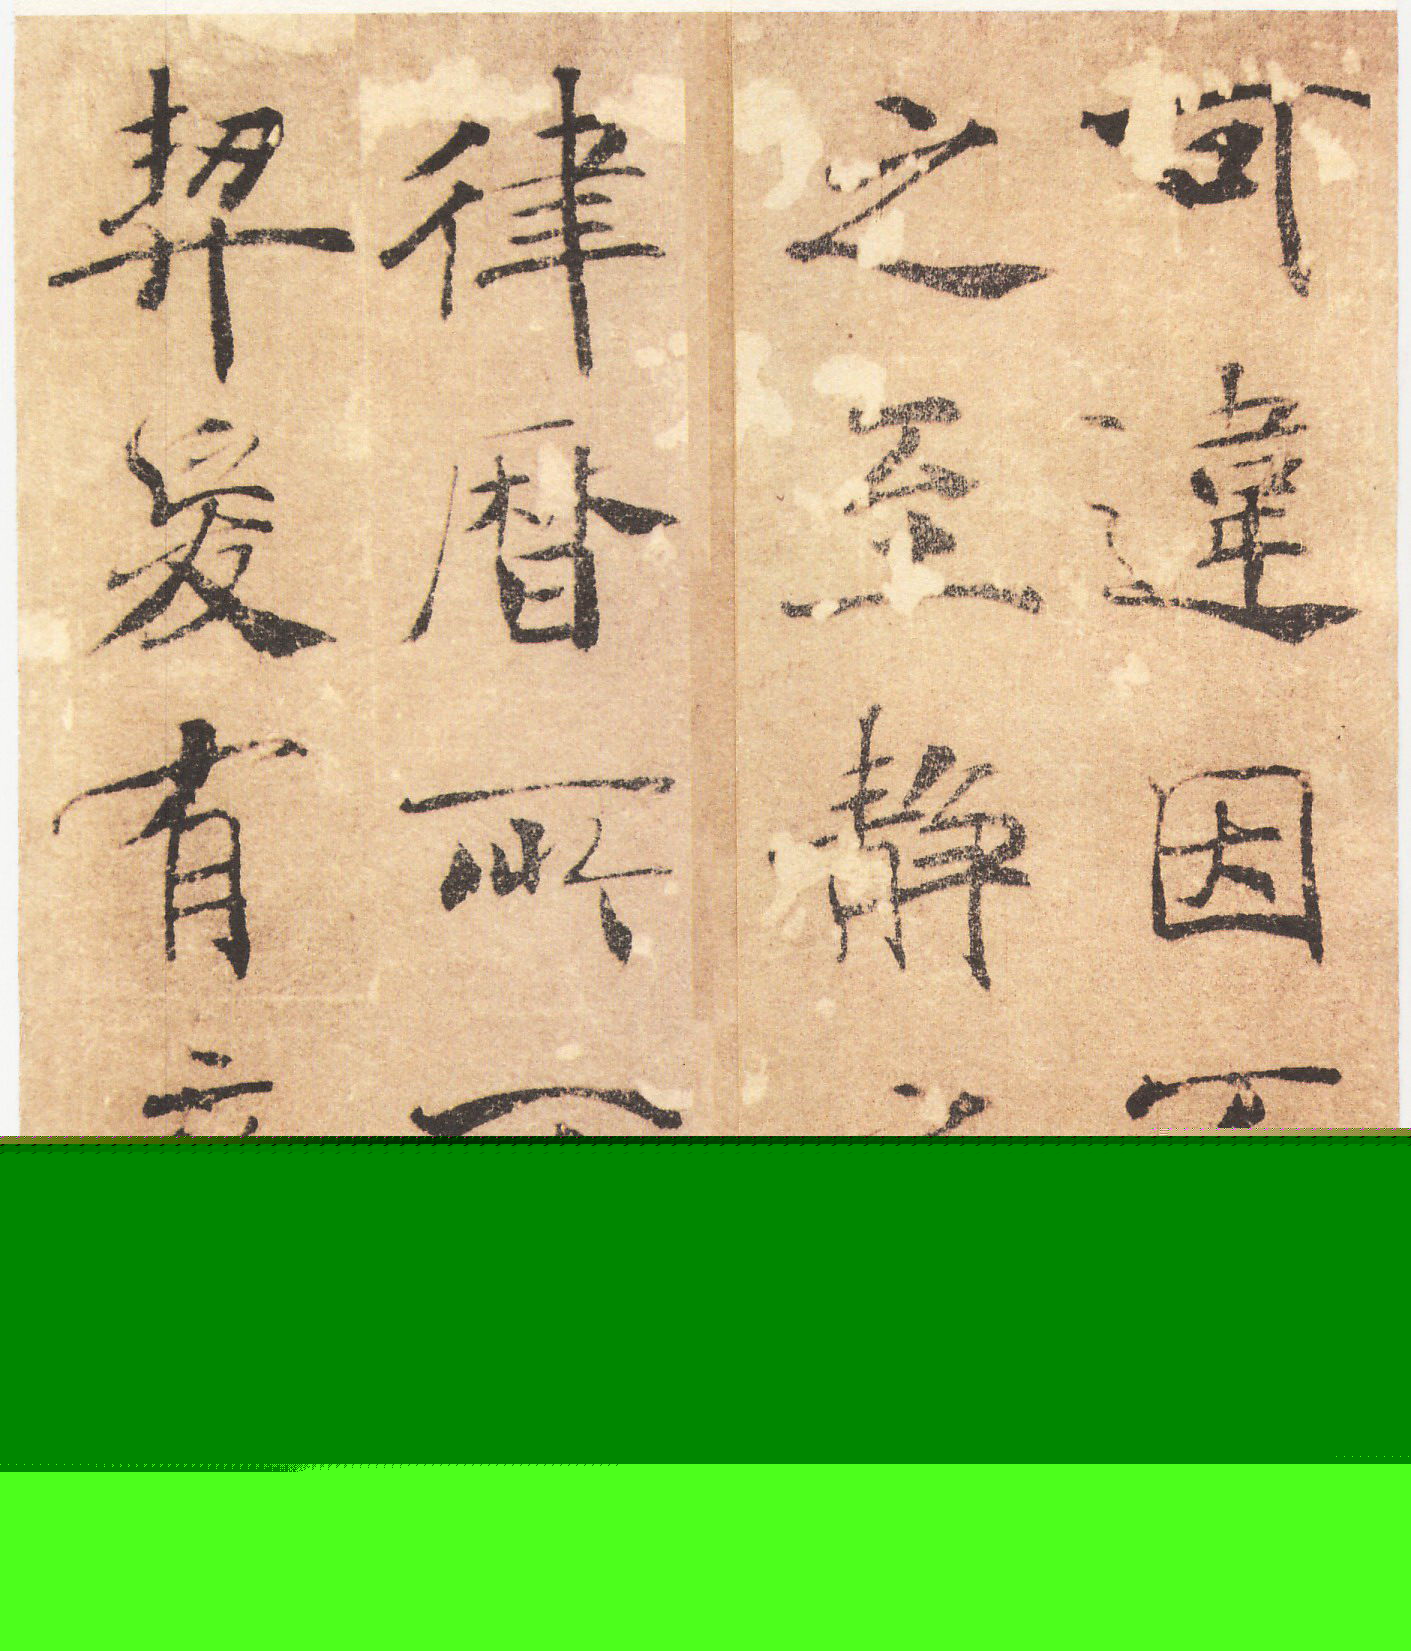 可違因
之至靜
律曆所
契爰有